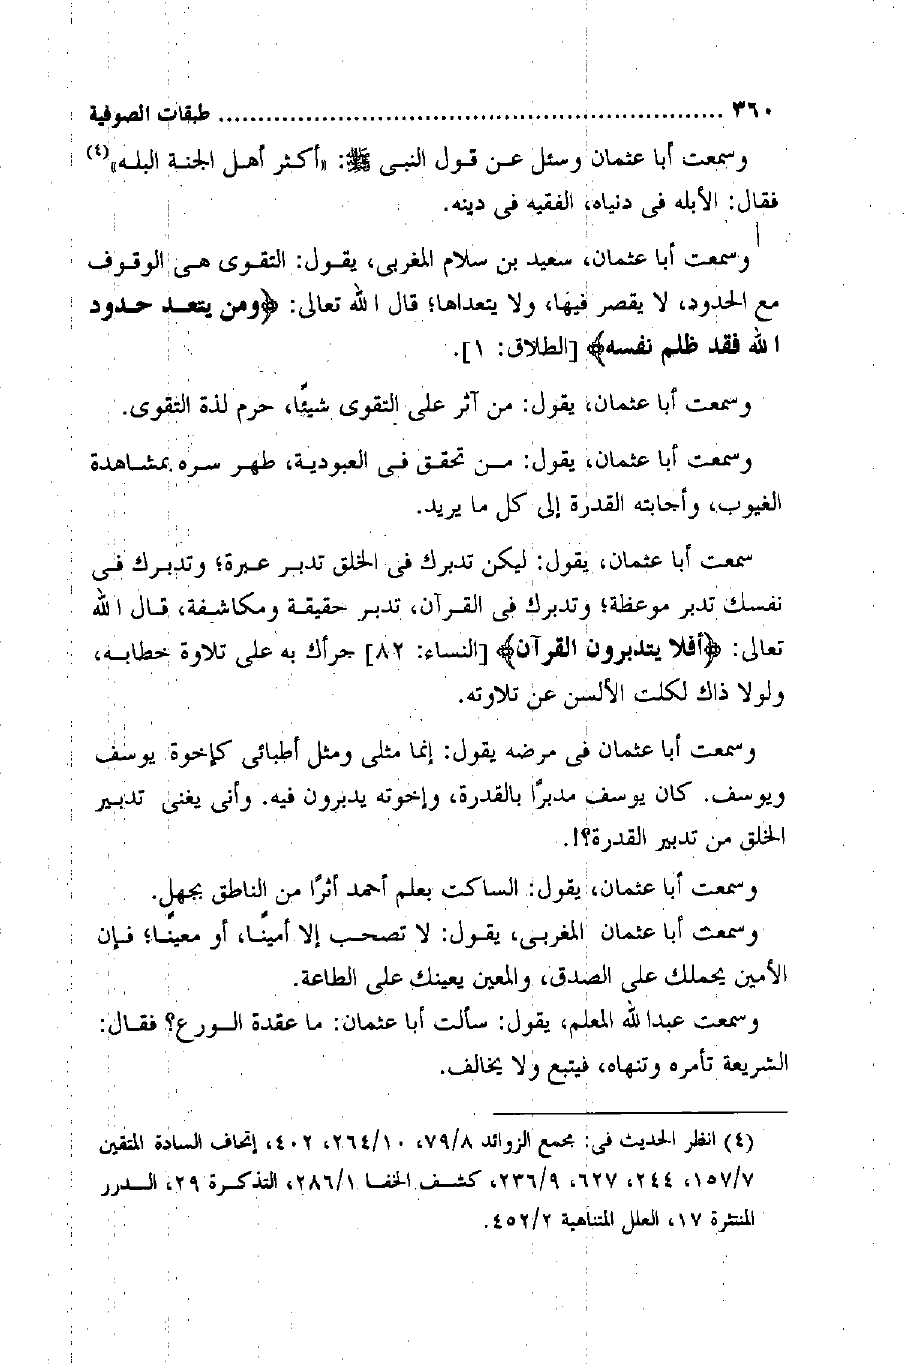 ٣٦٠ ............................................................... طبقات الصوفية
وسمعت أبا عثمان وسئل عن قول النبى ﷺ: «أكثر أهل الجنة البله»(٤)
فقال: الأبله فى دنياه، الفقيه فى دينه.
وسمعت أبا عثمان، سعيد بن سلام المغربى، يقول: التقوى هى الوقوف
مع الحدود، لا يقصر فيها، ولا يتعداها؛ قال الله تعالى: ﴿ومن يتعد حدود
الله فقد ظلم نفسه﴾ [الطلاق: ١].
وسمعت أبا عثمان، يقول: من آثر على التقوى شيئًا، حرم لذة التقوى.
وسمعت أبا عثمان، يقول: من تحقق فى العبودية، طهر سره بمشاهدة
الغيوب، وأجابته القدرة إلى كل ما يريد.
سمعت أبا عثمان، يقول: ليكن تدبرك فى الخلق تدبر عبرة؛ وتدبرك فى
نفسك تدبر موعظة؛ وتدبرك فى القرآن، تدبر حقيقة ومكاشفة، قال الله
تعالى: ﴿أفلا يتدبرون القرآن﴾ [النساء: ٨٢] جرأك به على تلاوة خطابه،
ولولا ذاك لكلت الألسن عن تلاوته.
وسمعت أبا عثمان فى مرضه يقول: إنما مثلى ومثل أطبائى كإخوة يوسف
ويوسف. كان يوسف مدبرًا بالقدرة، وإخوته يدبرون فيه. وأنى يغنى تدبير
الخلق من تدبير القدرة؟!.
وسمعت أبا عثمان، يقول: الساكت بعلم أحمد أثرًا من الناطق بجهل.
وسمعت أبا عثمان المغربى، يقول: لا تصحب إلا أمينًا، أو معينًا؛ فإن
الأمين يحملك على الصدق، والمعين يعينك على الطاعة.
وسمعت عبدالله المعلم، يقول: سألت أبا عثمان: ما عقدة الورع؟ فقال:
الشريعة تأمره وتنهاه، فيتبع ولا يخالف.
(٤) انظر الحديث فى: مجمع الزوائد ٧٩/٨، ٢٦٤/١٠، ٤٠٢، إتحاف السادة المتقين
١٥٧/٧، ٢٤٤، ٦٢٧، ٢٣٦/٩، كشف الخفا ٢٨٦/١، التذكرة ٢٩، الدرر
المنتثرة ١٧، العلل المتناهية ٤٥٢/٢.